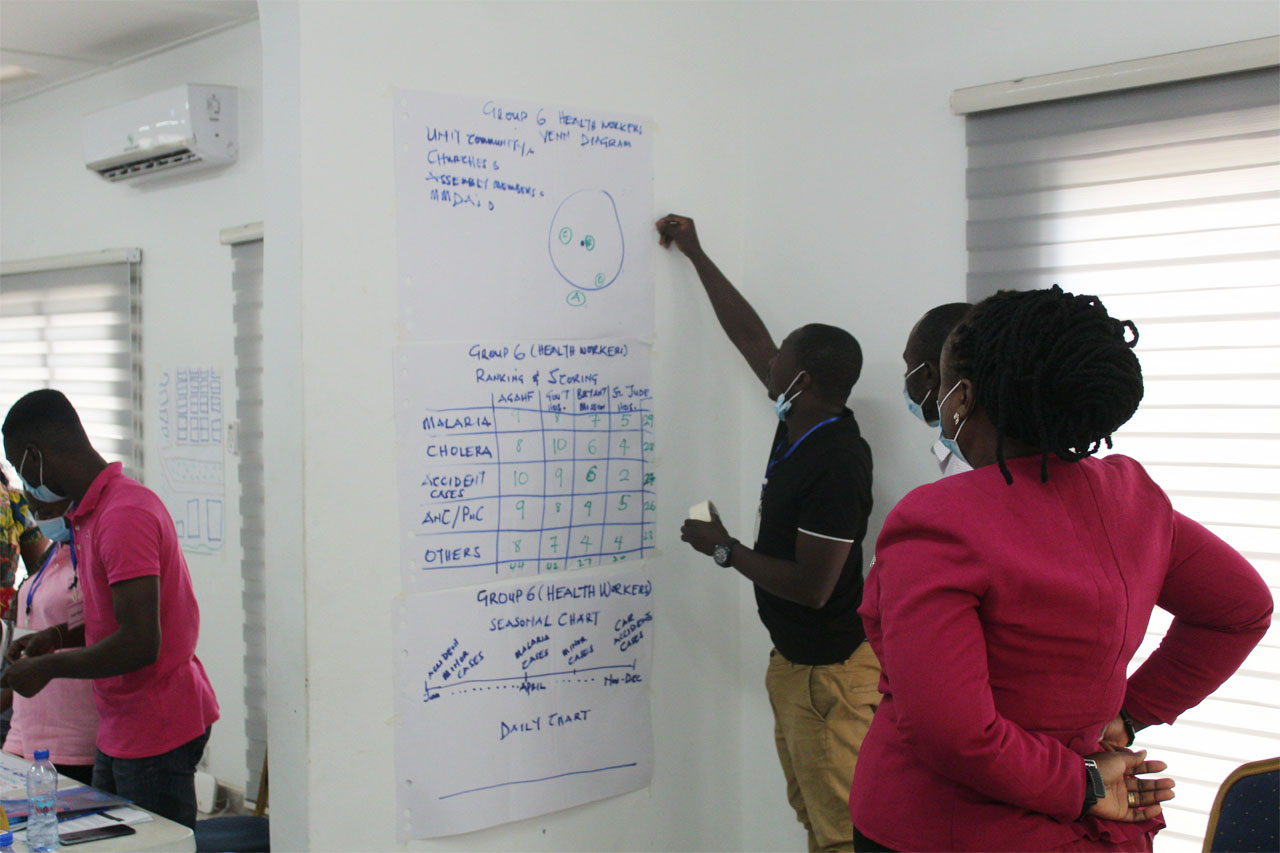 GROUP 6 HEALTH WORKERS
VENN DIAGRAM
UNIT COMMUNITY A
CHURCHES
ASSEMBLY MEMBERS
MMDA's D
C
A
GROUP 6 (HEALTH WORKERS)
RANKING & SCORING
AGAHF GOV'T HOS. BRYANT MISSION ST. JUDE HOS.
MALARIA 9 8 7 5 29
CHOLERA 8 10 6 4 28
ACCIDENT CASES 10 9 6 2 27
ANC/PNC 9 8 4 5 26
OTHERS 8 7 4 4 23
44 42 27 20
GROUP 6 (HEALTH WORKERS)
SEASONAL CHART
MINOR CASES
MALARIA CASES
MINOR CASES
CAR ACCIDENTS CASES
APRIL
NOV-DEC
DAILY CHART